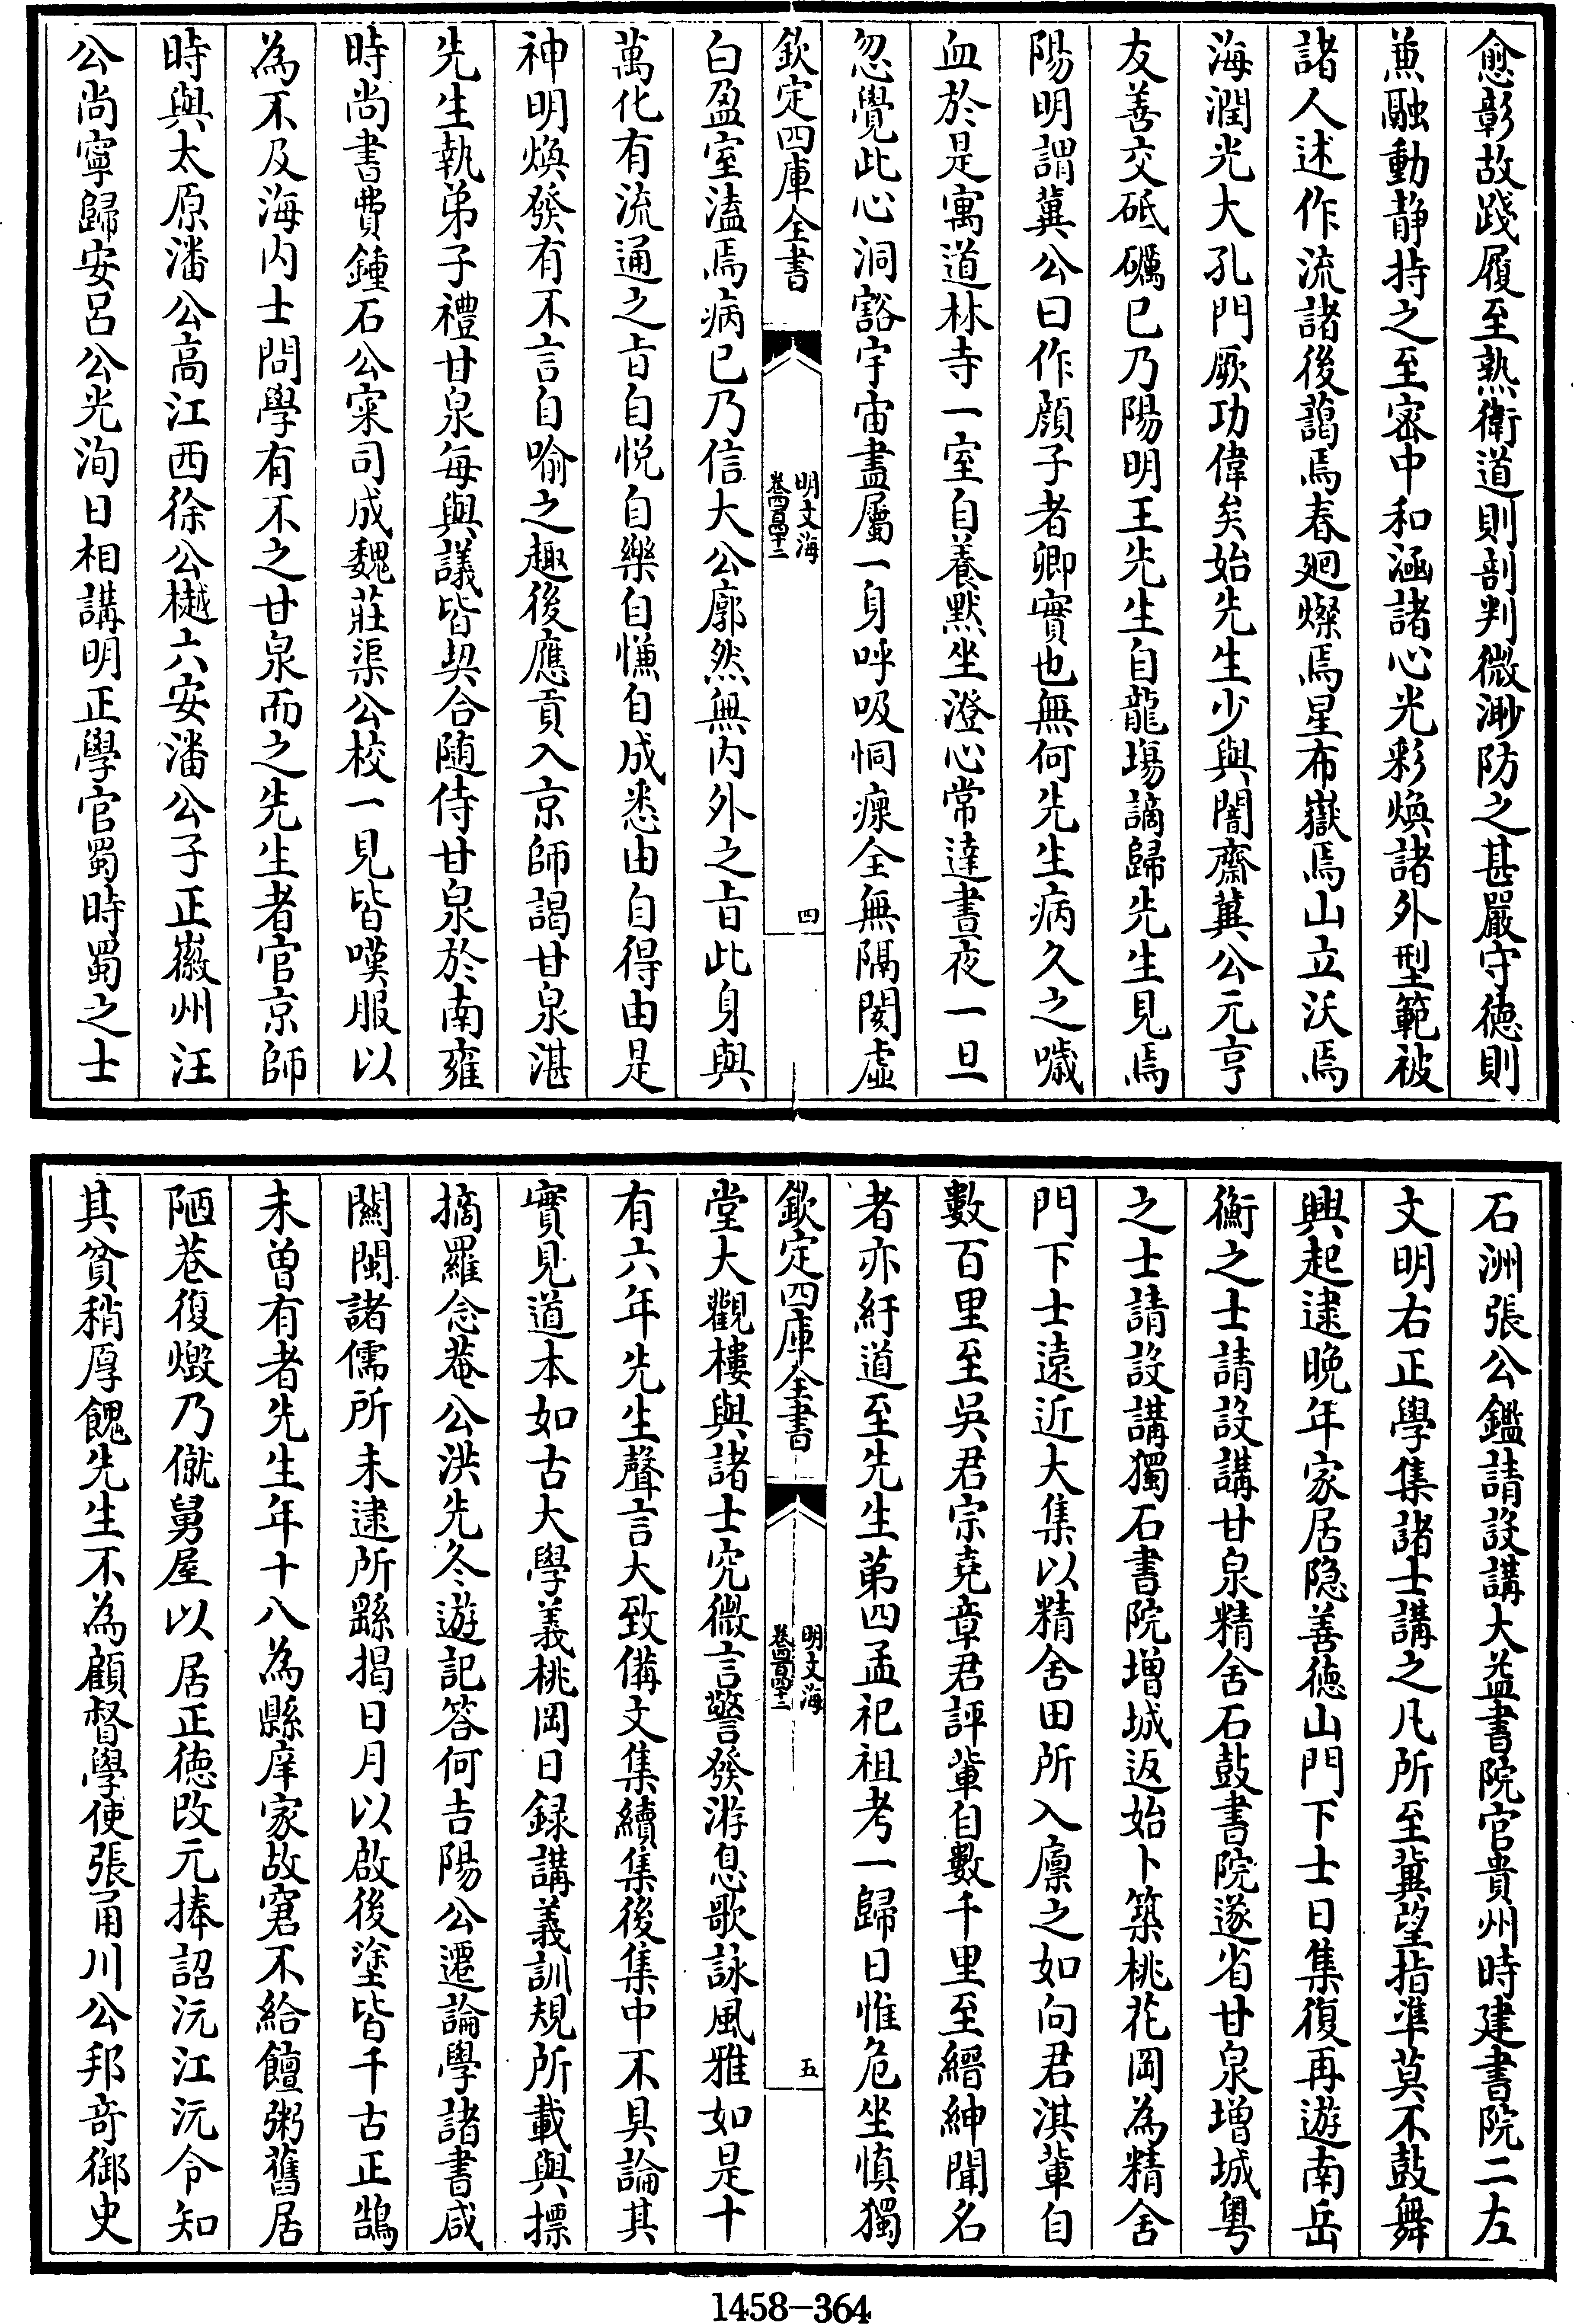 愈彰故踐履至熟衛道則剖判微渺防之甚嚴守徳則
兼融動静持之至宻中和涵諸心光彩煥諸外型範被
諸人述作流諸後藹焉春廻燦焉星布嶽焉山立沃焉
海潤光大孔門厥功偉矣始先生少與闇齋冀公元亨
友善交砥礪已乃陽明王先生自龍塲謫歸先生見焉
陽明謂冀公曰作顔子者卿實也無何先生病久之噦
血於是寓道林寺一室自養黙坐澄心常達晝夜一旦
忽覺此心洞豁宇宙盡屬一身呼吸恫瘝全無隔閡虛
欽定四庫全書
明文海
卷四百四十二
四
白盈室溘焉病已乃信大公廓然無内外之㫖此身與
萬化有流通之㫖自悦自樂自慊自成悉由自得由是
神明煥發有不言自喻之趣後應貢入京師謁甘泉湛
先生執弟子禮甘泉每與議皆契合隨侍甘泉於南雍
時尚書費鍾石公寀司成魏莊渠公校一見皆嘆服以
為不及海内士問學有不之甘泉而之先生者官京師
時與太原潘公高江西徐公樾六安潘公子正徽州汪
公尚寧歸安呂公光洵日相講明正學官蜀時蜀之士
石洲張公鑑請設講大益書院官貴州時建書院二左
文明右正學集諸士講之凡所至冀望指凖莫不鼓舞
興起逮晩年家居隐善徳山門下士日集復再遊南岳
衡之士請設講甘泉精舍石鼓書院遂省甘泉增城粤
之士請設講獨石書院增城返始卜築桃花岡為精舍
門下士遠近大集以精舍田所入廪之如向君淇輩自
數百里至吳君宗堯章君評輩自數千里至縉紳聞名
者亦紆道至先生第四孟祀祖考一歸日惟危坐慎獨
欽定四庫全書
明文海
卷四百四十二
五
堂大觀樓與諸士究微言警發游息歌詠風雅如是十
有六年先生聲言大致備文集續集後集中不具論其
實見道本如古大學義桃岡日録講義訓規所載與摽
摘羅念菴公洪先冬遊記答何吉陽公遷論學諸書咸
關閩諸儒所未逮所繇揭日月以啟後塗皆千古正鵠
未曽有者先生年十八為縣庠家故窘不給饘粥舊居
陋巷復燬乃僦舅屋以居正徳改元捧詔沅江沅令知
其貧稍厚餽先生不為顧督學使張甬川公邦竒御史
1458-364